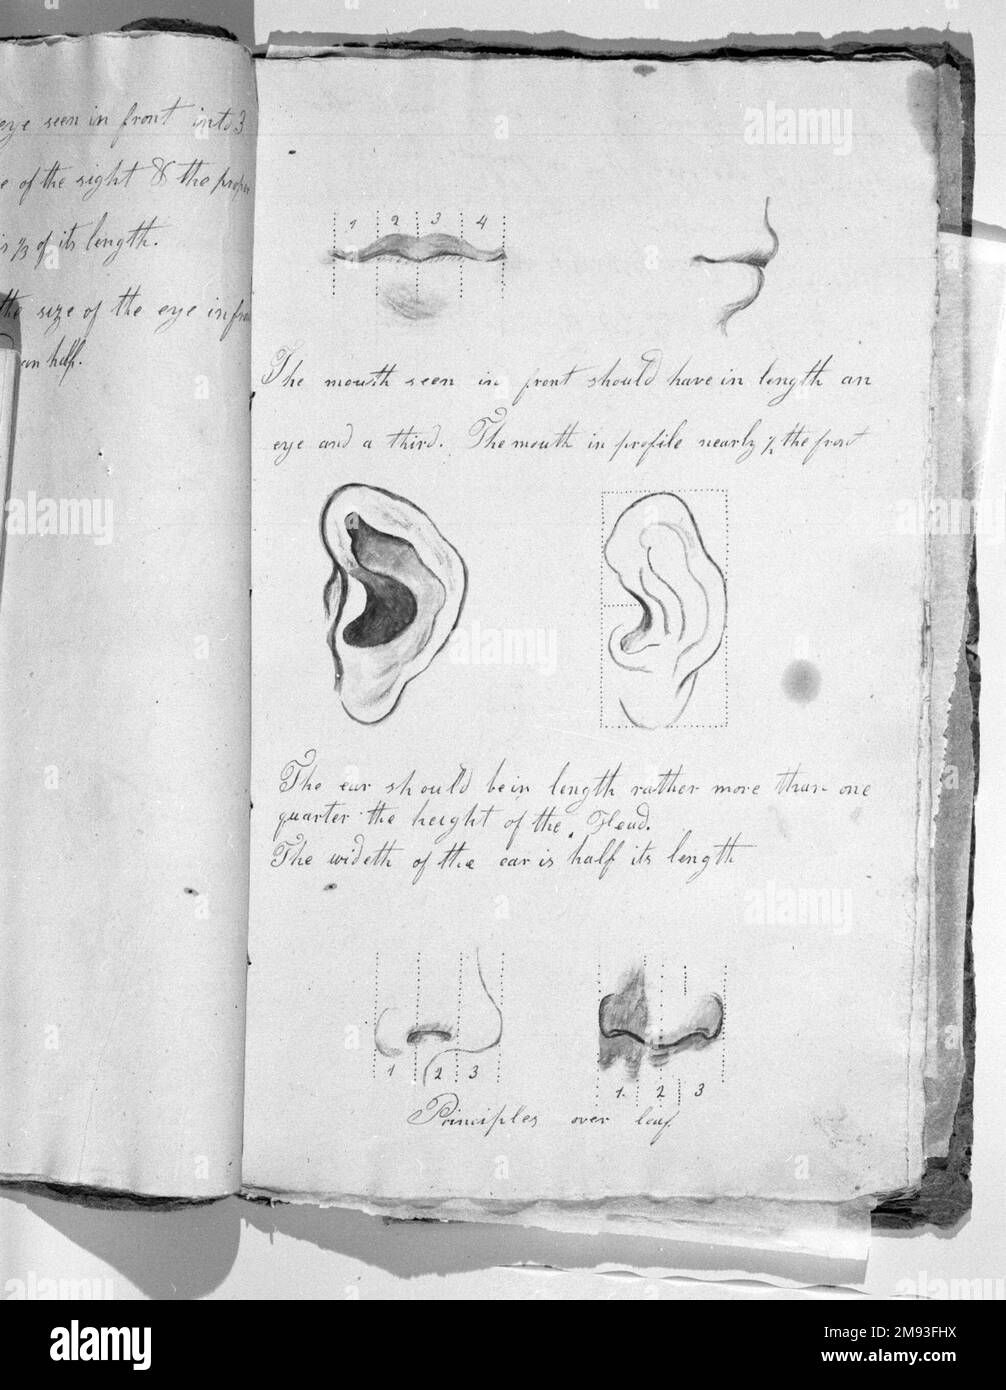 eye seen in front into 3
e of the sight & the proper
is ⅓ of its length.
the size of the eye in fron
an half.
1 2 3 4
The mouth seen in front should have in length an
eye and a third. The mouth in profile nearly ½ the front
The ear should be in length rather more than one
quarter the height of the Head.
The wideth of the ear is half its length
1 2 3
1. 2 3
Principles over leaf
alamy
Image ID: 2M93FHX
www.alamy.com